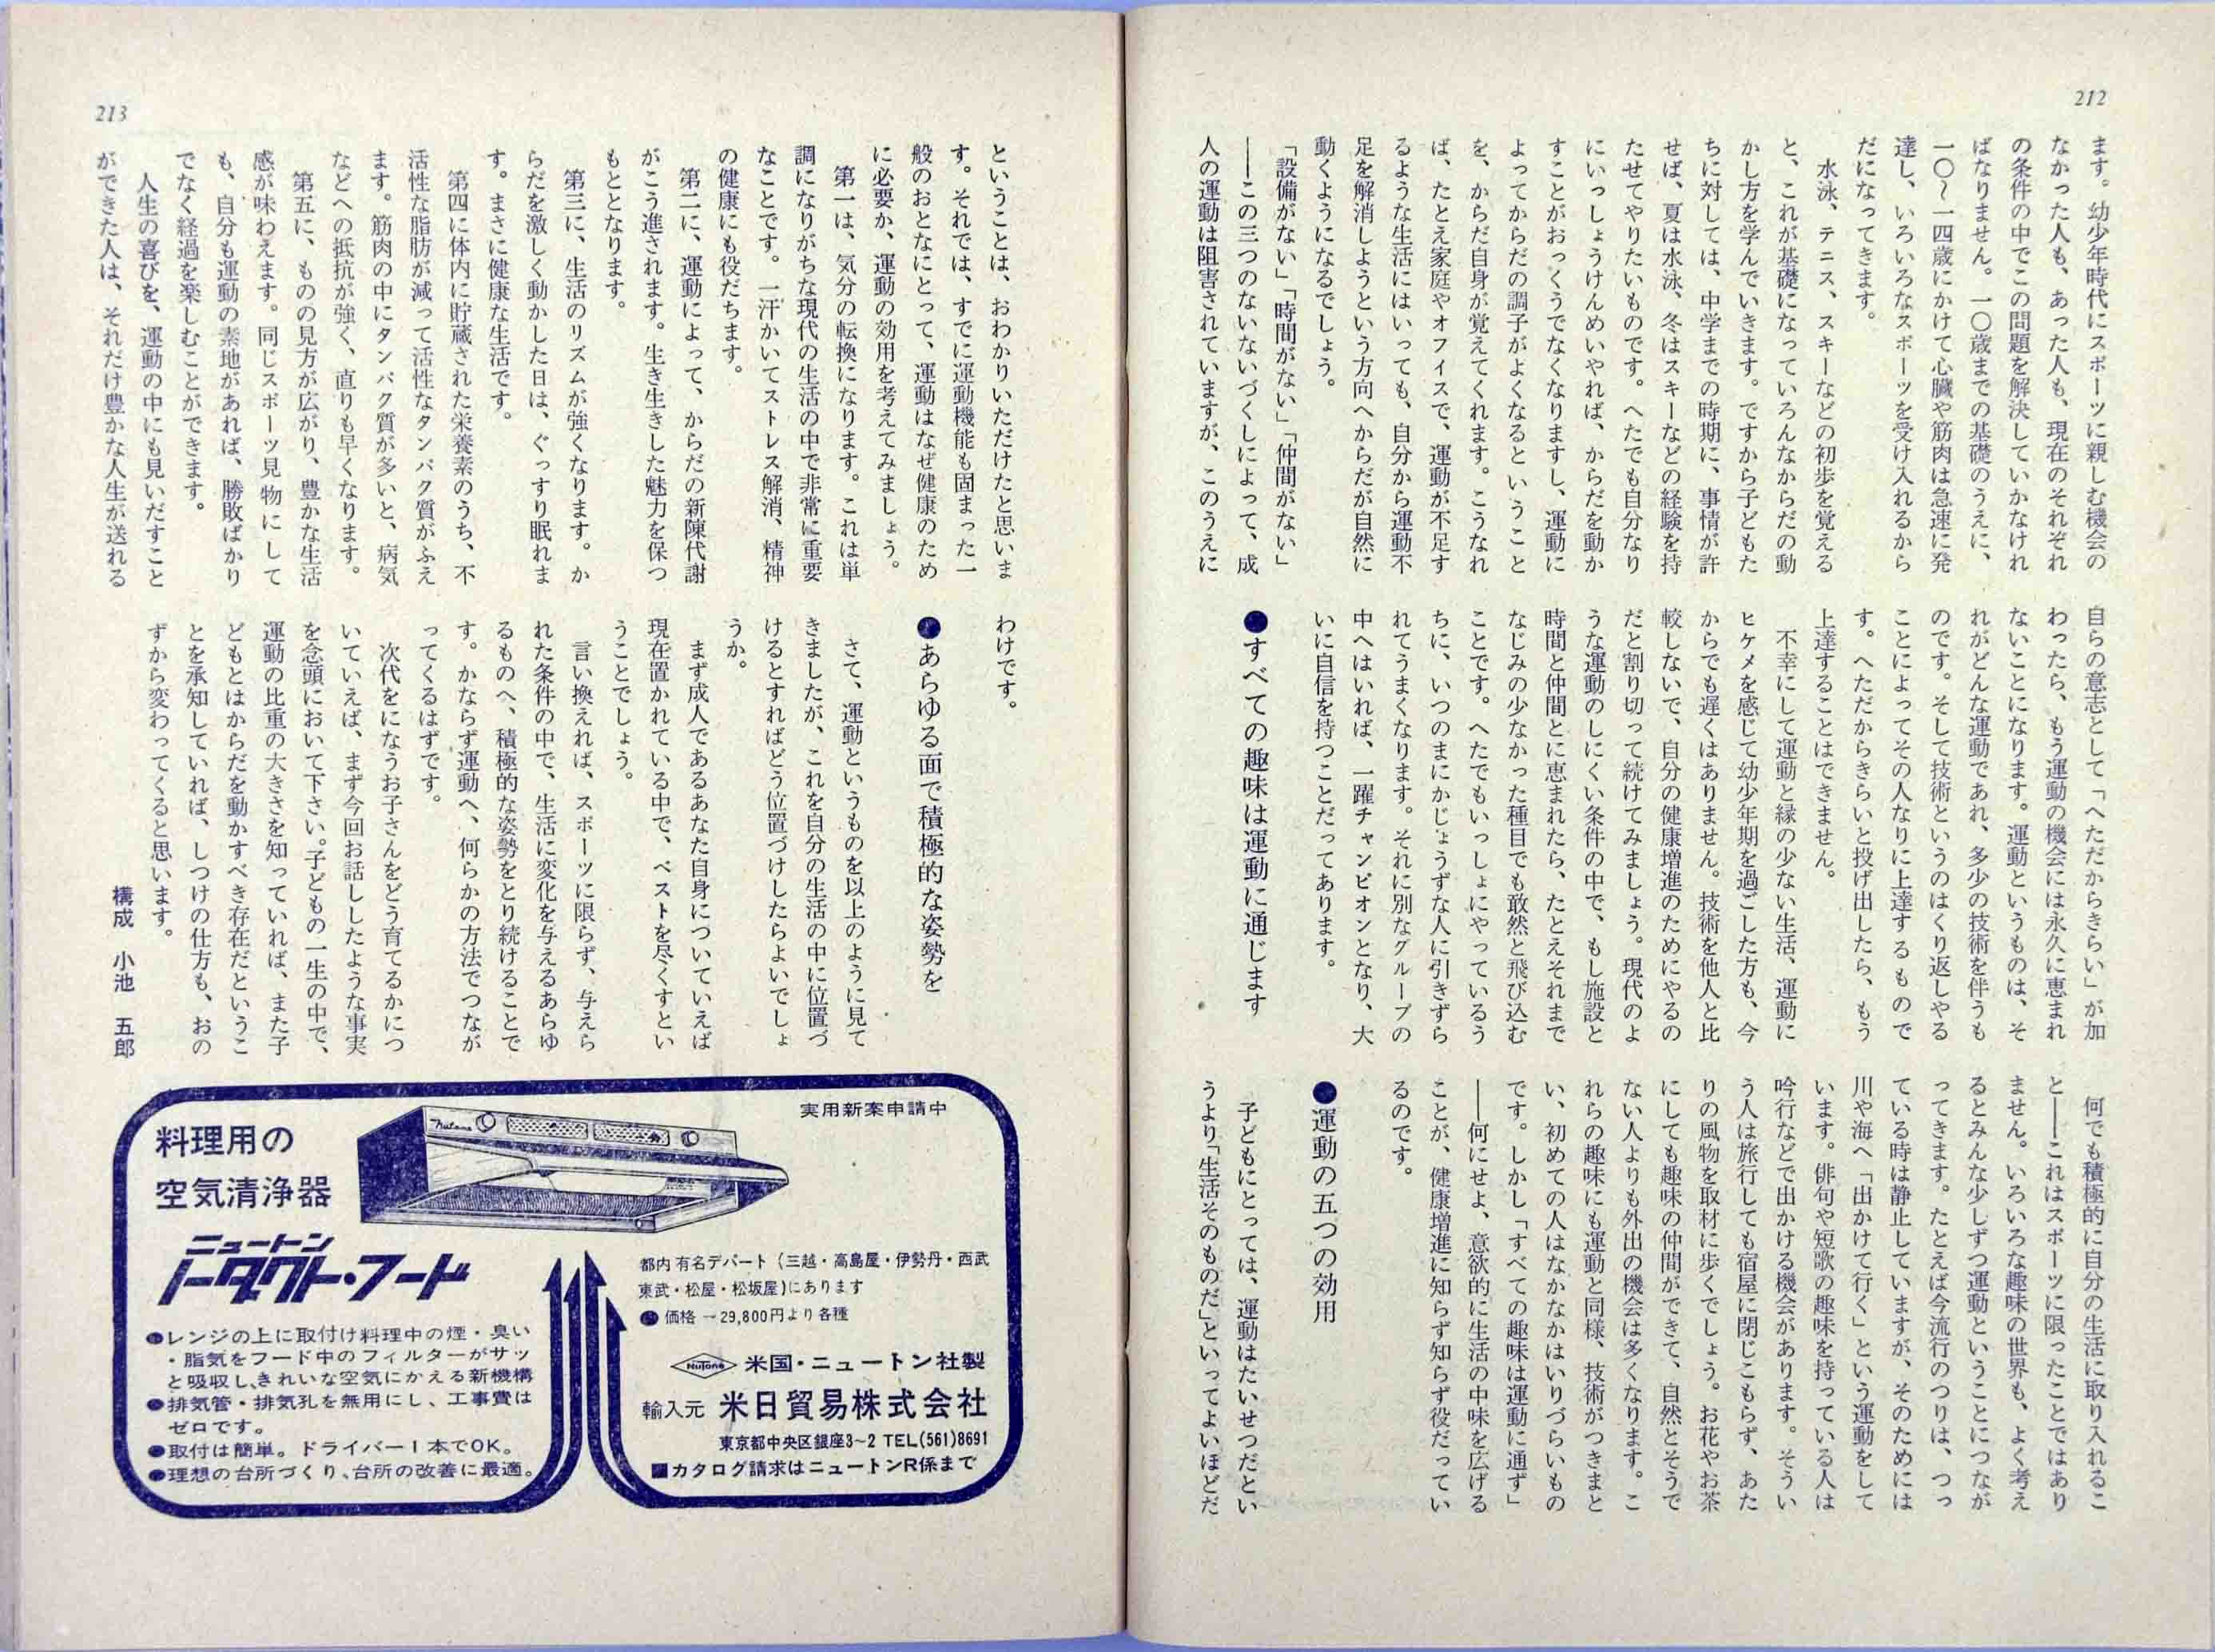 212
ます。幼少年時代にスポーツに親しむ機会の
なかった人も、あった人も、現在のそれぞれ
の条件の中でこの問題を解決していかなけれ
ばなりません。一〇歳までの基礎のうえに、
一〇〜一四歳にかけて心臓や筋肉は急速に発
達し、いろいろなスポーツを受け入れるから
だになってきます。
水泳、テニス、スキーなどの初歩を覚える
と、これが基礎になっていろんなからだの動
かし方を学んでいきます。ですから子どもた
ちに対しては、中学までの時期に、事情が許
せば、夏は水泳、冬はスキーなどの経験を持
たせてやりたいものです。へたでも自分なり
にいっしょうけんめいやれば、からだを動か
すことがおっくうでなくなりますし、運動に
よってからだの調子がよくなるということ
を、からだ自身が覚えてくれます。こうなれ
ば、たとえ家庭やオフィスで、運動が不足す
るような生活にはいっても、自分から運動不
足を解消しようという方向へからだが自然に
動くようになるでしょう。
「設備がない」「時間がない」「仲間がない」
――この三つのないないづくしによって、成
人の運動は阻害されていますが、このうえに
自らの意志として「へただからきらい」が加
わったら、もう運動の機会には永久に恵まれ
ないことになります。運動というものは、そ
れがどんな運動であれ、多少の技術を伴うも
のです。そして技術というのははくり返しやる
ことによってその人なりに上達するもので
す。へただからきらいと投げ出したら、もう
上達することはできません。
不幸にして運動と縁の少ない生活、運動に
ヒケメを感じて幼少年期を過ごした方も、今
からでも遅くはありません。技術を他人と比
較しないで、自分の健康増進のためにやるの
だと割り切って続けてみましょう。現代のよ
うな運動のしにくい条件の中で、もし施設と
時間と仲間とに恵まれたら、たとえそれまで
なじみの少なかった種目でも敢然と飛び込む
ことです。へたでもいっしょにやっているう
ちに、いつのまにかじょうずな人に引きずら
れてうまくなります。それに別なグループの
中へはいれば、一躍チャンピオンとなり、大
いに自信を持つことだってあります。
●すべての趣味は運動に通じます
何でも積極的に自分の生活に取り入れるこ
と――これはスポーツに限ったことではあり
ません。いろいろな趣味の世界も、よく考え
るとみんな少しずつ運動ということにつなが
ってきます。たとえば今流行のつりは、つっ
ている時は静止していますが、そのためには
川や海へ「出かけて行く」という運動をして
います。俳句や短歌の趣味を持っている人は
吟行などで出かける機会があります。そうい
う人は旅行しても宿屋に閉じこもらず、あた
りの風物を取材に歩くでしょう。お花やお茶
にしても趣味の仲間ができて、自然とそうで
ない人よりも外出の機会は多くなります。こ
れらの趣味にも運動と同様、技術がつきまと
い、初めての人はなかなかはいりづらいもの
です。しかし「すべての趣味は運動に通ず」
――何にせよ、意欲的に生活の中味を広げる
ことが、健康増進に知らず知らず役だってい
るのです。
●運動の五つの効用
子どもにとっては、運動はたいせつだとい
うより「生活そのものだ」といってよいほどだ
213
ということは、おわかりいただけたと思いま
す。それでは、すでに運動機能も固まった一
般のおとなにとって、運動はなぜ健康のため
に必要か、運動の効用を考えてみましょう。
第一は、気分の転換になります。これは単
調になりがちな現代の生活の中で非常に重要
なことです。一汗かいてストレス解消、精神
の健康にも役だちます。
第二に、運動によって、からだの新陳代謝
がこう進されます。生き生きした魅力を保つ
もととなります。
第三に、生活のリズムが強くなります。か
らだを激しく動かした日は、ぐっすり眠れま
す。まさに健康な生活です。
第四に体内に貯蔵された栄養素のうち、不
活性な脂肪が減って活性なタンパク質がふえ
ます。筋肉の中にタンパク質が多いと、病気
などへの抵抗が強く、直りも早くなります。
第五に、ものの見方が広がり、豊かな生活
感が味わえます。同じスポーツ見物にして
も、自分も運動の素地があれば、勝敗ばかり
でなく経過を楽しむことができます。
人生の喜びを、運動の中にも見いだすこと
ができた人は、それだけ豊かな人生が送れる
わけです。
●あらゆる面で積極的な姿勢を
さて、運動というものを以上のように見て
きましたが、これを自分の生活の中に位置づ
けるとすればどう位置づけしたらよいでしょ
うか。
まず成人であるあなた自身についていえば
現在置かれている中で、ベストを尽くすとい
うことでしょう。
言い換えれば、スポーツに限らず、与えら
れた条件の中で、生活に変化を与えるあらゆ
るものへ、積極的な姿勢をとり続けることで
す。かならず運動へ、何らかの方法でつなが
ってくるはずです。
次代をになうお子さんをどう育てるかにつ
いていえば、まず今回お話ししたような事実
を念頭において下さい。子どもの一生の中で、
運動の比重の大きさを知っていれば、また子
どもとはからだを動かすべき存在だというこ
とを承知していれば、しつけの仕方も、おの
ずから変わってくると思います。
構成 小池 五郎
実用新案申請中
Nutone
料理用の
空気清浄器
ニュートン
ノーダクト・フード
●レンジの上に取付け料理中の煙・臭い
・脂気をフード中のフィルターがサッ
と吸収し、きれいな空気にかえる新機構
●排気管・排気孔を無用にし、工事費は
ゼロです。
●取付は簡単。ドライバー1本でOK。
●理想の台所づくり、台所の改善に最適。
都内有名デパート(三越・高島屋・伊勢丹・西武
東武・松屋・松坂屋)にあります
●価格ー29,800円より各種
NuTone 米国・ニュートン社製
輸入元 米日貿易株式会社
東京都中央区銀座3~2 TEL(561)8691
■カタログ請求はニュートンR係まで